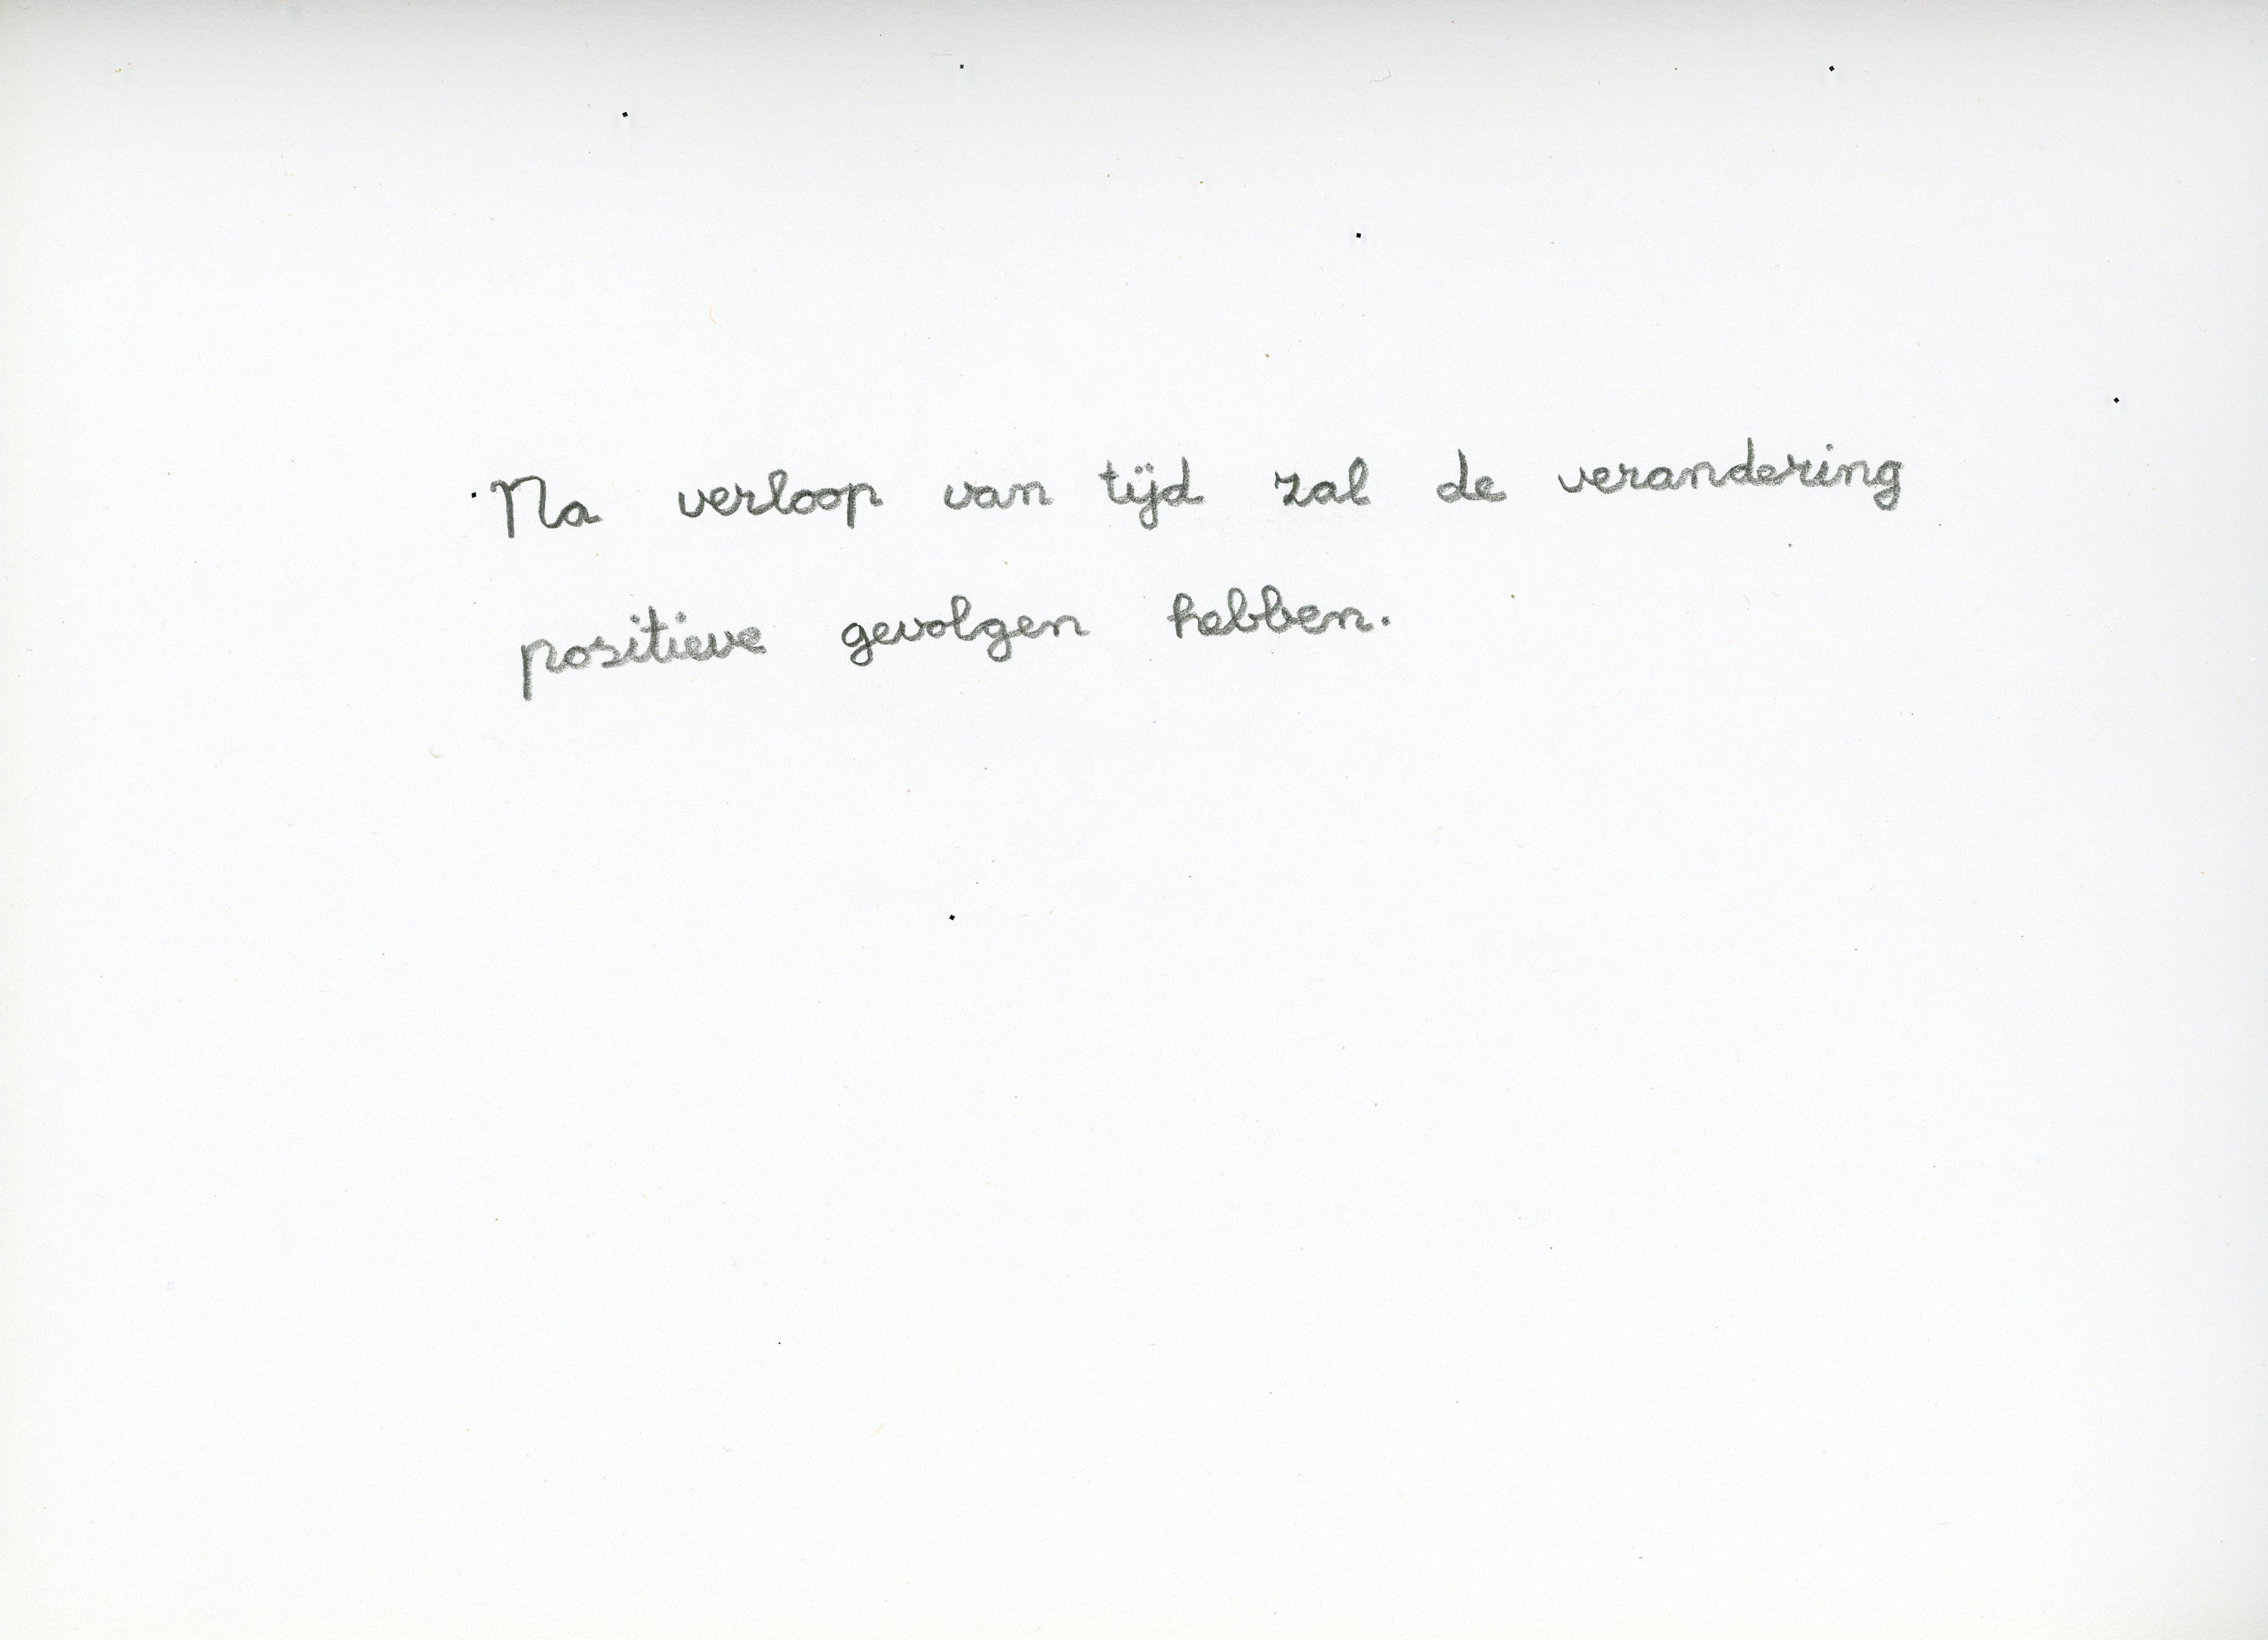 Na verloop van tijd zal de verandering
positieve gevolgen hebben.